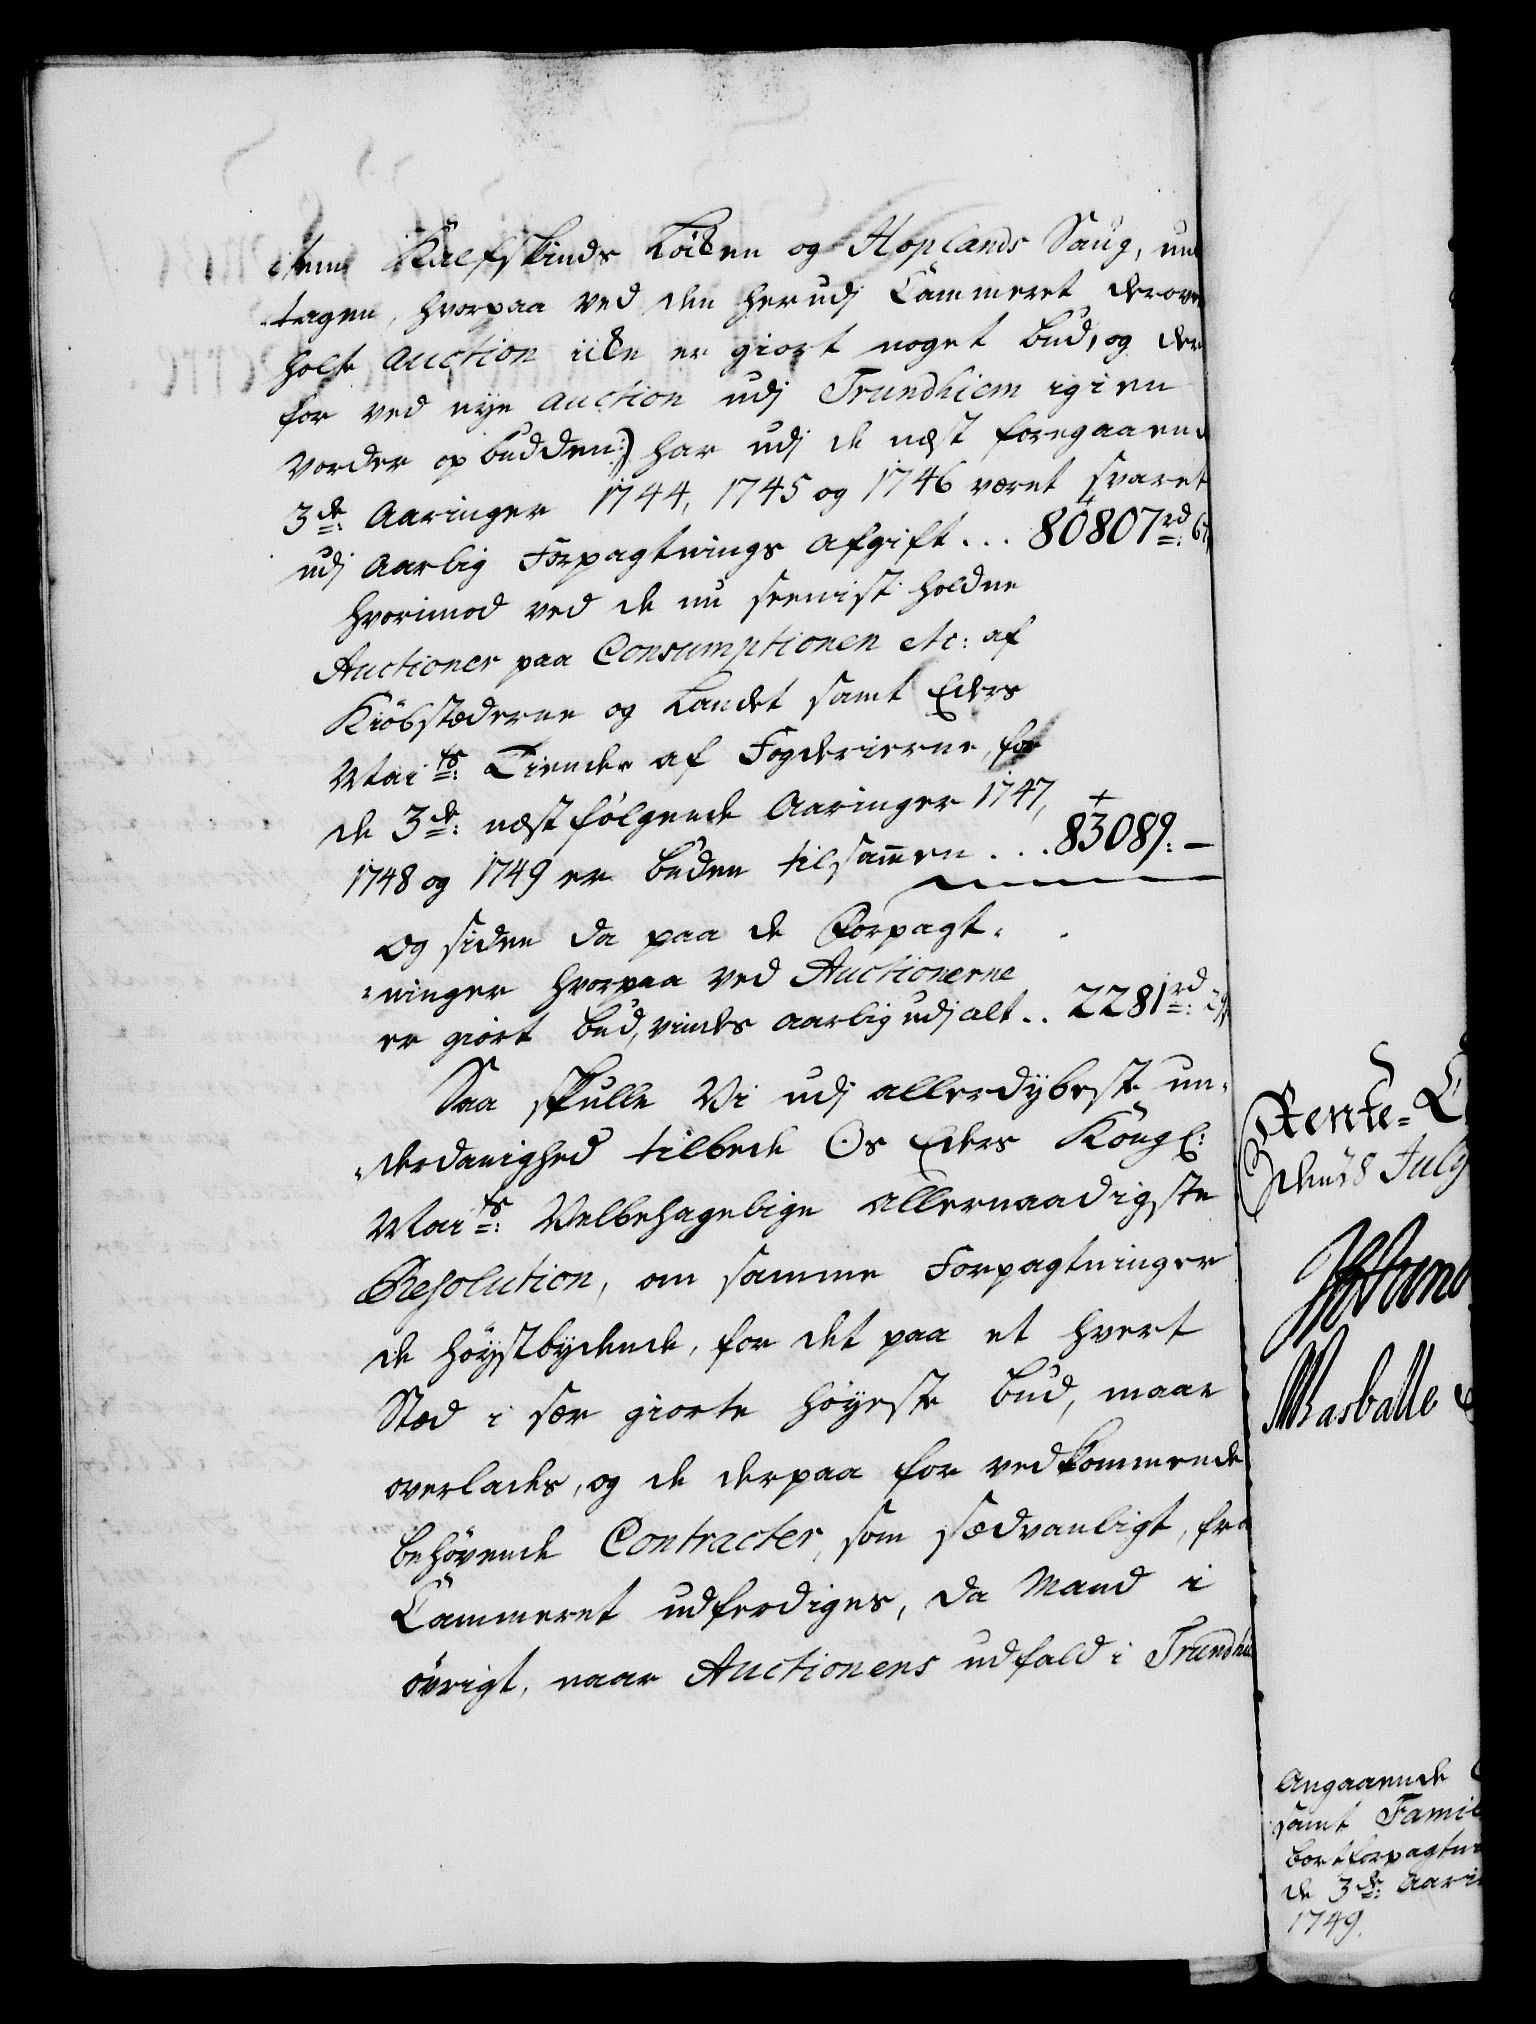 item Kalfskinds Løkken og Hoplands Saug, und
tagen, hvorpaa ved den herudj Cammeret derove
holte Auction icke er giort noget bud, og der
for ved nye auction udj Trundhiem igien
vorder opbudden:) har udj de næst foregaaend
3de: Aaringer 1744, 1745 og 1746 været svaret
udj aarlig Forpagtnings afgift... 80807rd: 67
hvorimod ved de nu seenist holdne
Auctioner paa Consumptionen etc: af
Kiöbstæderne og Landet samt Eders
Maits: Tiender af Fogderierne, for
de 3de: næstfölgende Aaringer 1747,
1748 og 1749 er buden tilsammen... 83089: —
og siden da paa de Forpagt-
-ninger hvorpaa ved Auctionerne
er giort bud, vindes aarlig udj alt.. 2281rd: 29
Saa skulle Vi udj allerdybeste un-
-derdanighed tilbede Os Eders Kongl:
Maits: Velbehagelige allernaadigste
Resolution, om samme Forpagtninger
de höystbydende, for det paa et hvert
Stæd i sær giorte höyeste bud, maae
overlades, og de derpaa for vedkommende
behövende Contracter, som sædvanligt, fra
Cammeret udferdiges, da Mand i
övrigt, naar Auctionens udfald i Trundhie
Rente-C
den 8 July
Angaaende
samt Famil
bortforpagtni
de 3de: Aari
1749.